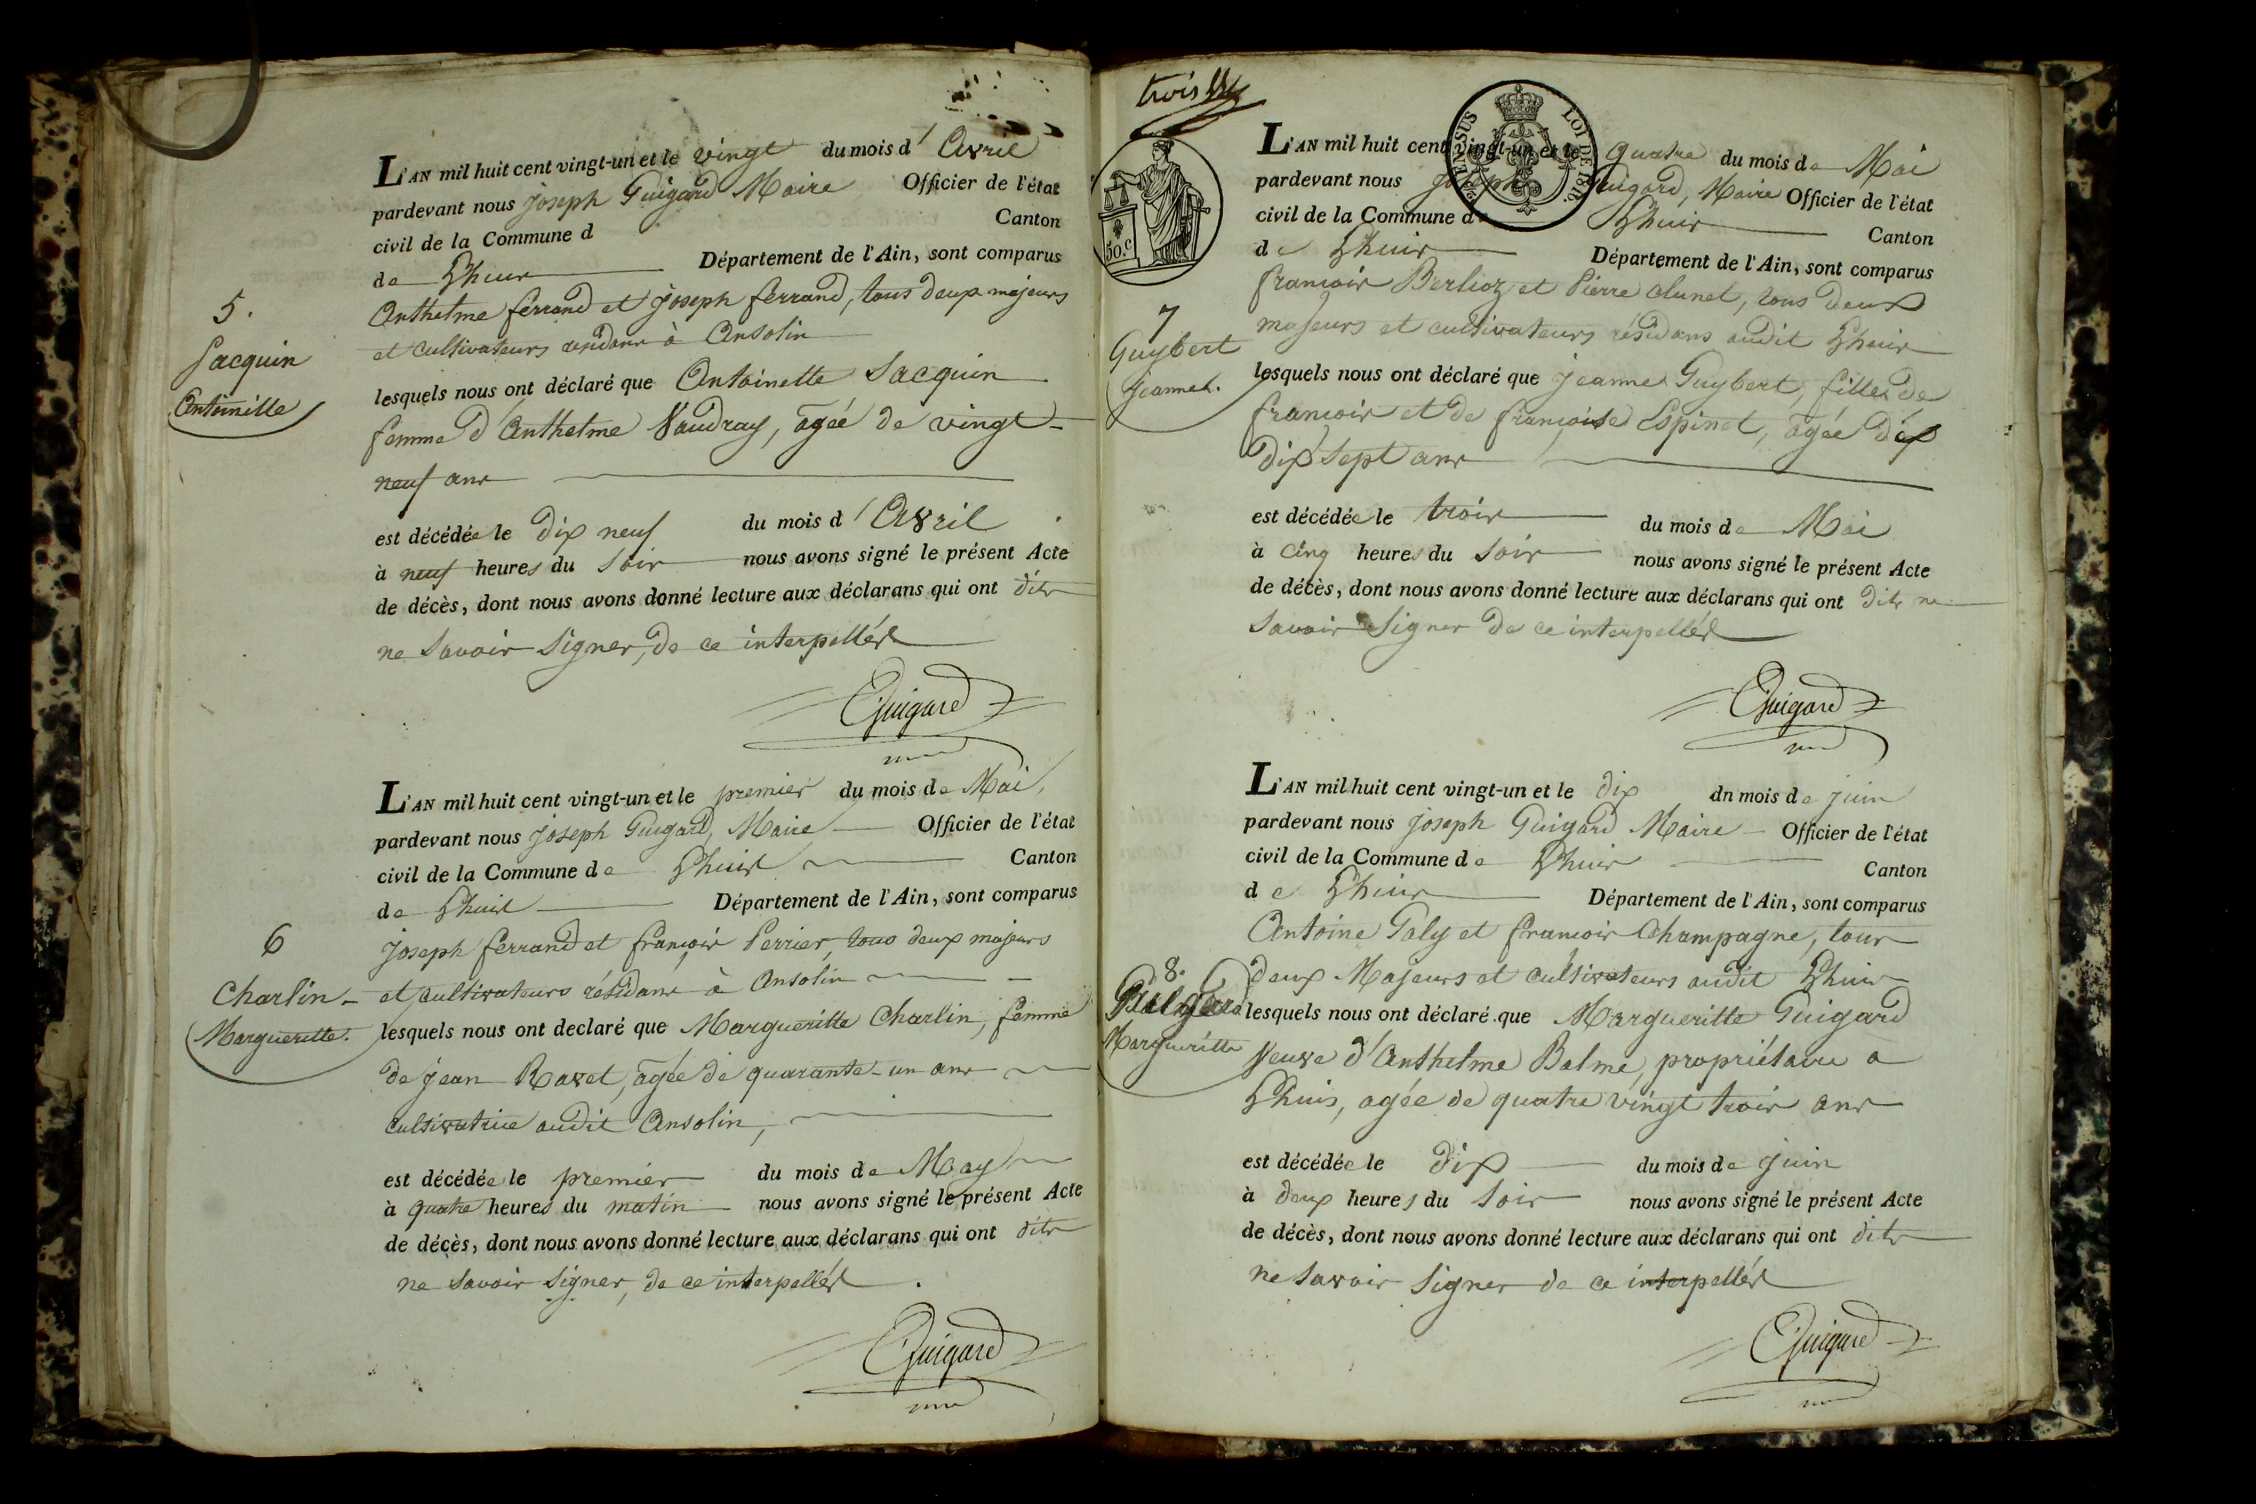 L'AN mil huit cent vingt-un et le vingt du mois d'Avril
pardevant nous joseph Guigard Maire Officier de l'état
civil de la Commune d Canton
de Lhuis Département de l'Ain, sont comparus
Anthelme ferrand et joseph ferrand, tous deux majeurs
et cultivateurs résidans à Ansolin
5.
Jacquin
Antoinille
lesquels nous ont déclaré que Antoinette Jacquin
femme d'Anthelme Vaudray, agéé de vingt-
neuf ans
est décédée le dix neuf du mois d'Avril
à neuf heures du soir nous avons signé le présent Acte
de décès, dont nous avons donné lecture aux déclarans qui ont dits
ne savoir signer, de ce interpellés
Guigard
L'AN mil huit cent vingt-un et le premier du mois de Mai,
pardevant nous joseph Guigard, Maire Officier de l'état
civil de la Commune de Lhuis Canton
de Lhuis Département de l'Ain, sont comparus
joseph ferrand et françois Perrier, tous deux majeurs
et cultivateurs résidans à Ansolin
6
Charlin
Margueritte.
lesquels nous ont declaré que Margueritte Charlin, femme
de jean Ravet, agée de quarante-un ans
cultivatrice audit Ansolin,
est décédée le premier du mois de May
à quatre heures du matin nous avons signé le présent Acte
de décès, dont nous avons donné lecture aux déclarans qui ont dits
ne savoir signer, de ce interpellés.
Guigard
trois
50.c
EN SUS LOI DE 1816.
L'AN mil huit cent vingt-un et le quatre du mois de Mai
pardevant nous joseph Guigard, Maire Officier de l'état
civil de la Commune de Lhuis Canton
de Lhuis Département de l'Ain, sont comparus
françois Berlioz et Pierre alunet, tous deux
majeurs et cultivateurs résidans audit Lhuis
7
Guybert
jeanne.
lesquels nous ont déclaré que jeanne Guybert, fille de
françois et de françoise Espinet, agée de
dix sept ans
est décédée le trois du mois de Mai
à cinq heures du soir nous avons signé le présent Acte
de décès, dont nous avons donné lecture aux déclarans qui ont dits ne
savoir signer de ce interpellés
Guigard
L'AN mil huit cent vingt-un et le dix dn mois de juin
pardevant nous joseph Guigard Maire Officier de l'état
civil de la Commune de Lhuis Canton
de Lhuis Département de l'Ain, sont comparus
Antoine Paly et françois Champagne, tous
deux Majeurs et cultivateurs audit Lhuis
8.
Margueritte
lesquels nous ont déclaré que Margueritte Guigard
Veuve d'Anthelme Balme, propriétaire a
Lhuis, agée de quatre vingt trois ans
est décédée le dix du mois de juin
à deux heures du soir nous avons signé le présent Acte
de décès, dont nous avons donné lecture aux déclarans qui ont dits
ne savoir signer de ce interpellés
Guigard